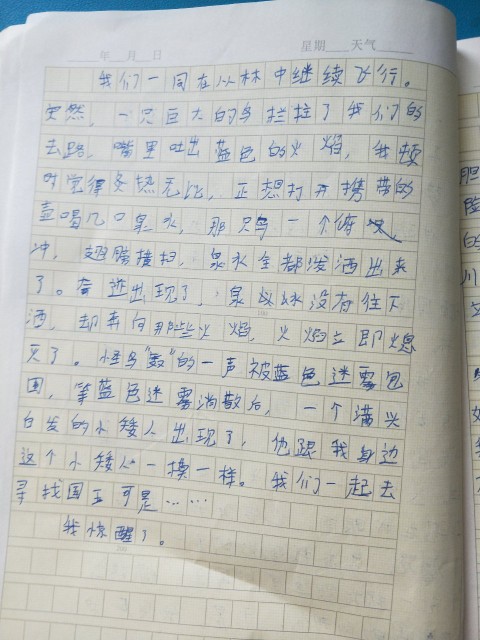 年 月 日 星期 天气
我们一同在以林中继续飞行。
突然，一只巨大的鸟拦拄了我们的
去路，嘴里吐出蓝色的火焰，我顿
时觉得炙热无比，正想打开携带的
壶喝几口泉水，那只鸟一个俯
冲，翅膀横扫，泉水全都泼洒出来
了。奇迹出现了，泉水没有往下
洒，却奔向那些火焰，火焰立即熄
灭了。怪鸟“嗷”的一声被蓝色迷雾包
围，等蓝色迷雾消散后，一个满
白发的小矮人出现了，他跟我身边
这个小矮人一模一样。我们一起去
寻找国王可是……
我惊醒了。
胆
险
的
川